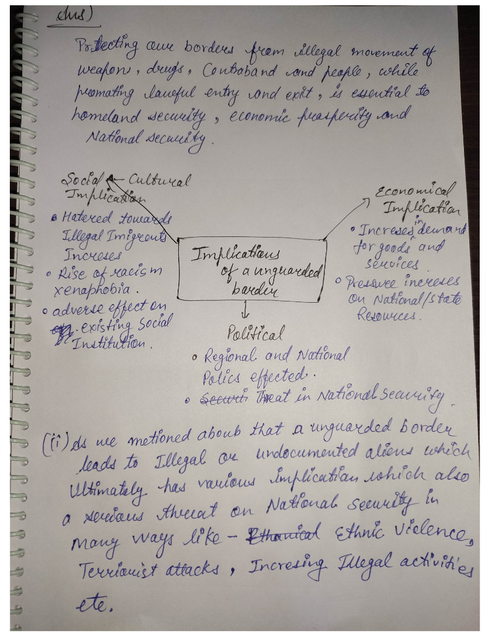 (Ans)
Protecting our borders from illegal movement of
weapon, drugs, Contraband and people, while
promating lawful entry and exit, is essential to
homeland security, economic prasperity and
National security.
Social ← Cultural
Implication
• Hatered towards
Illegal Imigrents
Increses
• Rise of racism
xenaphobia.
• adverse effect on
existing Social
Institution.
Implications
of a unguarded
barder
Economical
Implication
• Increses in demand
for goods and
services.
• Pressure increses
On National/state
Resources.
Political
• Regional and National
Polics effected.
• Securi Threat in National Security.
(ii) As we metioned aboub that a unguarded border
leads to Illegal or undocumented aliens which
Ultimately has various implication which also
a serious threat on National Security in
many ways like - Ethanical Ethnic Violence,
Terriorist attacks, Incresing Illegal activities
etc.